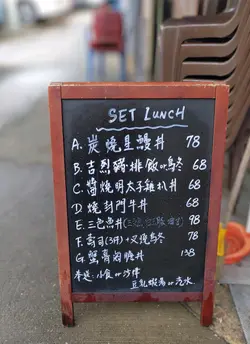 SET LUNCH
A. 炭燒星鰻丼 78
B. 吉烈豬排飯or烏冬 68
C. 醬燒明太子雞扒丼 68
D. 燒封門牛丼 68
E. 三色魚丼 98
F. 壽司(3件)+叉燒烏冬 78
G. 蟹膏 丼 138
小食or沙律
or汽水